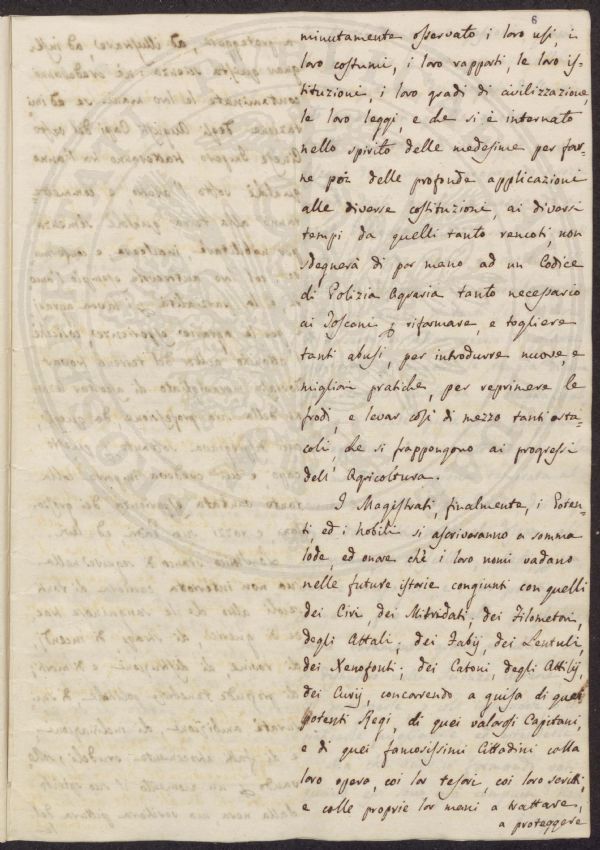 6
minutamente osservato i loro usi, i
loro costumi, i loro rapporti, le loro is-
tituzioni, i loro gradi di civilizzazione,
le loro leggi, e che si è internato
nello spirito delle medesime per far-
ne poi delle profonde applicazioni
alle diverse costituzioni, ai diversi
tempi da quelli tanto remoti, non
sdegnerà di por mano ad un Codice
di Polizia Agraria tanto necessario
ai Toscani p riformare, e togliere
tanti abusi, per introdurre nuove, e
migliori pratiche, per reprimere le
frodi, e levar così di mezzo tanti osta-
coli, che si frappongono ai progressi
dell' Agricoltura.
I Magistrati, finalmente, i Poten-
ti, ed i Nobili si ascriveranno a somma
lode, ed onore chè i loro nomi vadano
nelle future istorie congiunti con quelli
dei Ciri, dei Mitridati, dei Filometori,
degli Attali; dei Fabij, dei Lentuli,
dei Xenofonti; dei Catoni, degli Attilij,
dei Curij, concorrendo a guisa di quei
potenti Regi, di quei valorosi Capitani,
e di quei famosissimi Cittadini colla
loro opera, coi lor tesori, coi loro scritti,
e colle proprie lor mani a trattare,
a proteggere